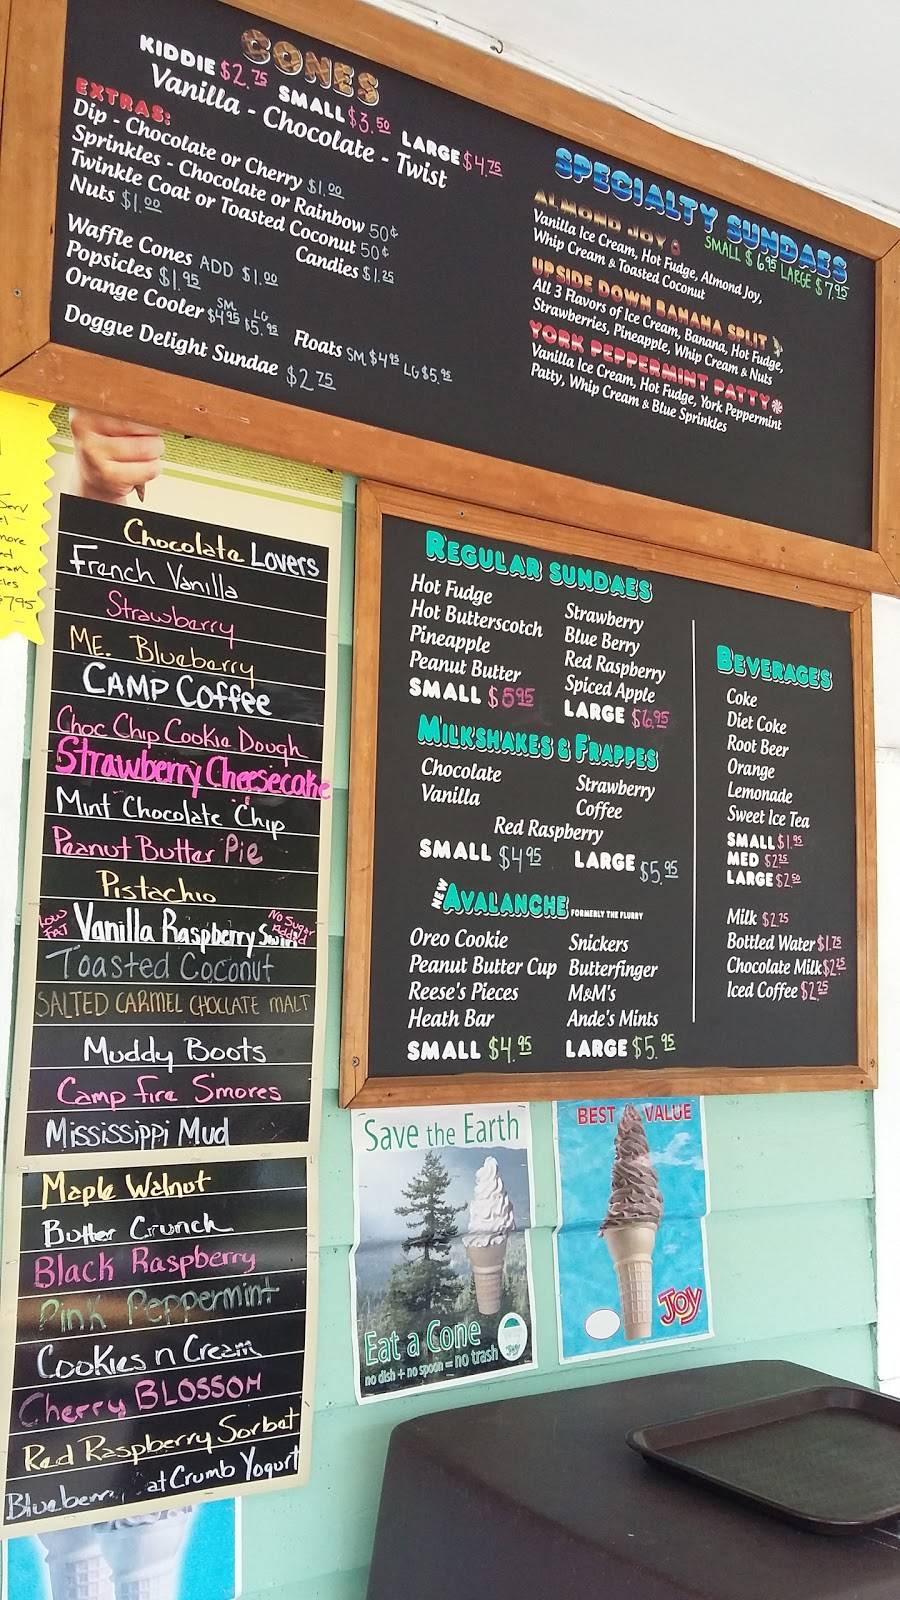 CONES
KIDDIE $2.75 SMALL $3.50 LARGE $4.75
Vanilla - Chocolate - Twist
EXTRAS:
Dip - Chocolate or Cherry $1.00
Sprinkles - Chocolate or Rainbow 50¢
Twinkle Coat or Toasted Coconut 50¢
Nuts $1.00 Candies $1.25
Waffle Cones ADD $1.00
Popsicles $1.95
Orange Cooler SM $4.95 LG $5.95 Floats SM $4.95 LG $5.95
Doggie Delight Sundae $2.75
SPECIALTY SUNDAES
SMALL $6.95 LARGE $7.95
ALMOND JOY
Vanilla Ice Cream, Hot Fudge, Almond Joy,
Whip Cream & Toasted Coconut
UPSIDE DOWN BANANA SPLIT
All 3 Flavors of Ice Cream, Banana, Hot Fudge,
Strawberries, Pineapple, Whip Cream & Nuts
YORK PEPPERMINT PATTY
Vanilla Ice Cream, Hot Fudge, York Peppermint
Patty, Whip Cream & Blue Sprinkles
more
$7.95
Chocolate Lovers
French Vanilla
Strawberry
ME. Blueberry
CAMP Coffee
Choc Chip Cookie Dough
Strawberry Cheesecake
Mint Chocolate Chip
Peanut Butter Pie
Pistachio
Low Fat Vanilla Raspberry Swirl No Sugar Added
Toasted Coconut
SALTED CARMEL CHOCLATE MALT
Muddy Boots
Camp Fire S'mores
Mississippi Mud
Maple Walnut
Butter Crunch
Black Raspberry
Pink Peppermint
Cookies n Cream
Cherry BLOSSOM
Red Raspberry Sorbet
at Crumb Yogurt
REGULAR SUNDAES
Hot Fudge Strawberry
Hot Butterscotch Blue Berry
Pineapple Red Raspberry
Peanut Butter Spiced Apple
SMALL $5.95 LARGE $6.95
MILKSHAKES & FRAPPES
Chocolate Strawberry
Vanilla Coffee
Red Raspberry
SMALL $4.95 LARGE $5.95
NEW AVALANCHE FORMERLY THE FLURRY
Oreo Cookie Snickers
Peanut Butter Cup Butterfinger
Reese's Pieces M&M's
Heath Bar Ande's Mints
SMALL $4.95 LARGE $5.95
BEVERAGES
Coke
Diet Coke
Root Beer
Orange
Lemonade
Sweet Ice Tea
SMALL $1.95
MED $2.25
LARGE $2.50
Milk $2.25
Bottled Water $1.75
Chocolate Milk $2.25
Iced Coffee $2.25
Save the Earth
Eat a Cone
no dish + no spoon = no trash
Joy
BEST VALUE
JOY